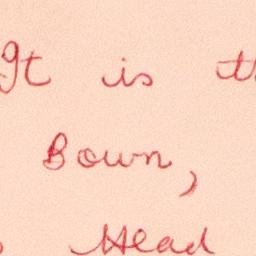 It is th
Bown,
Head